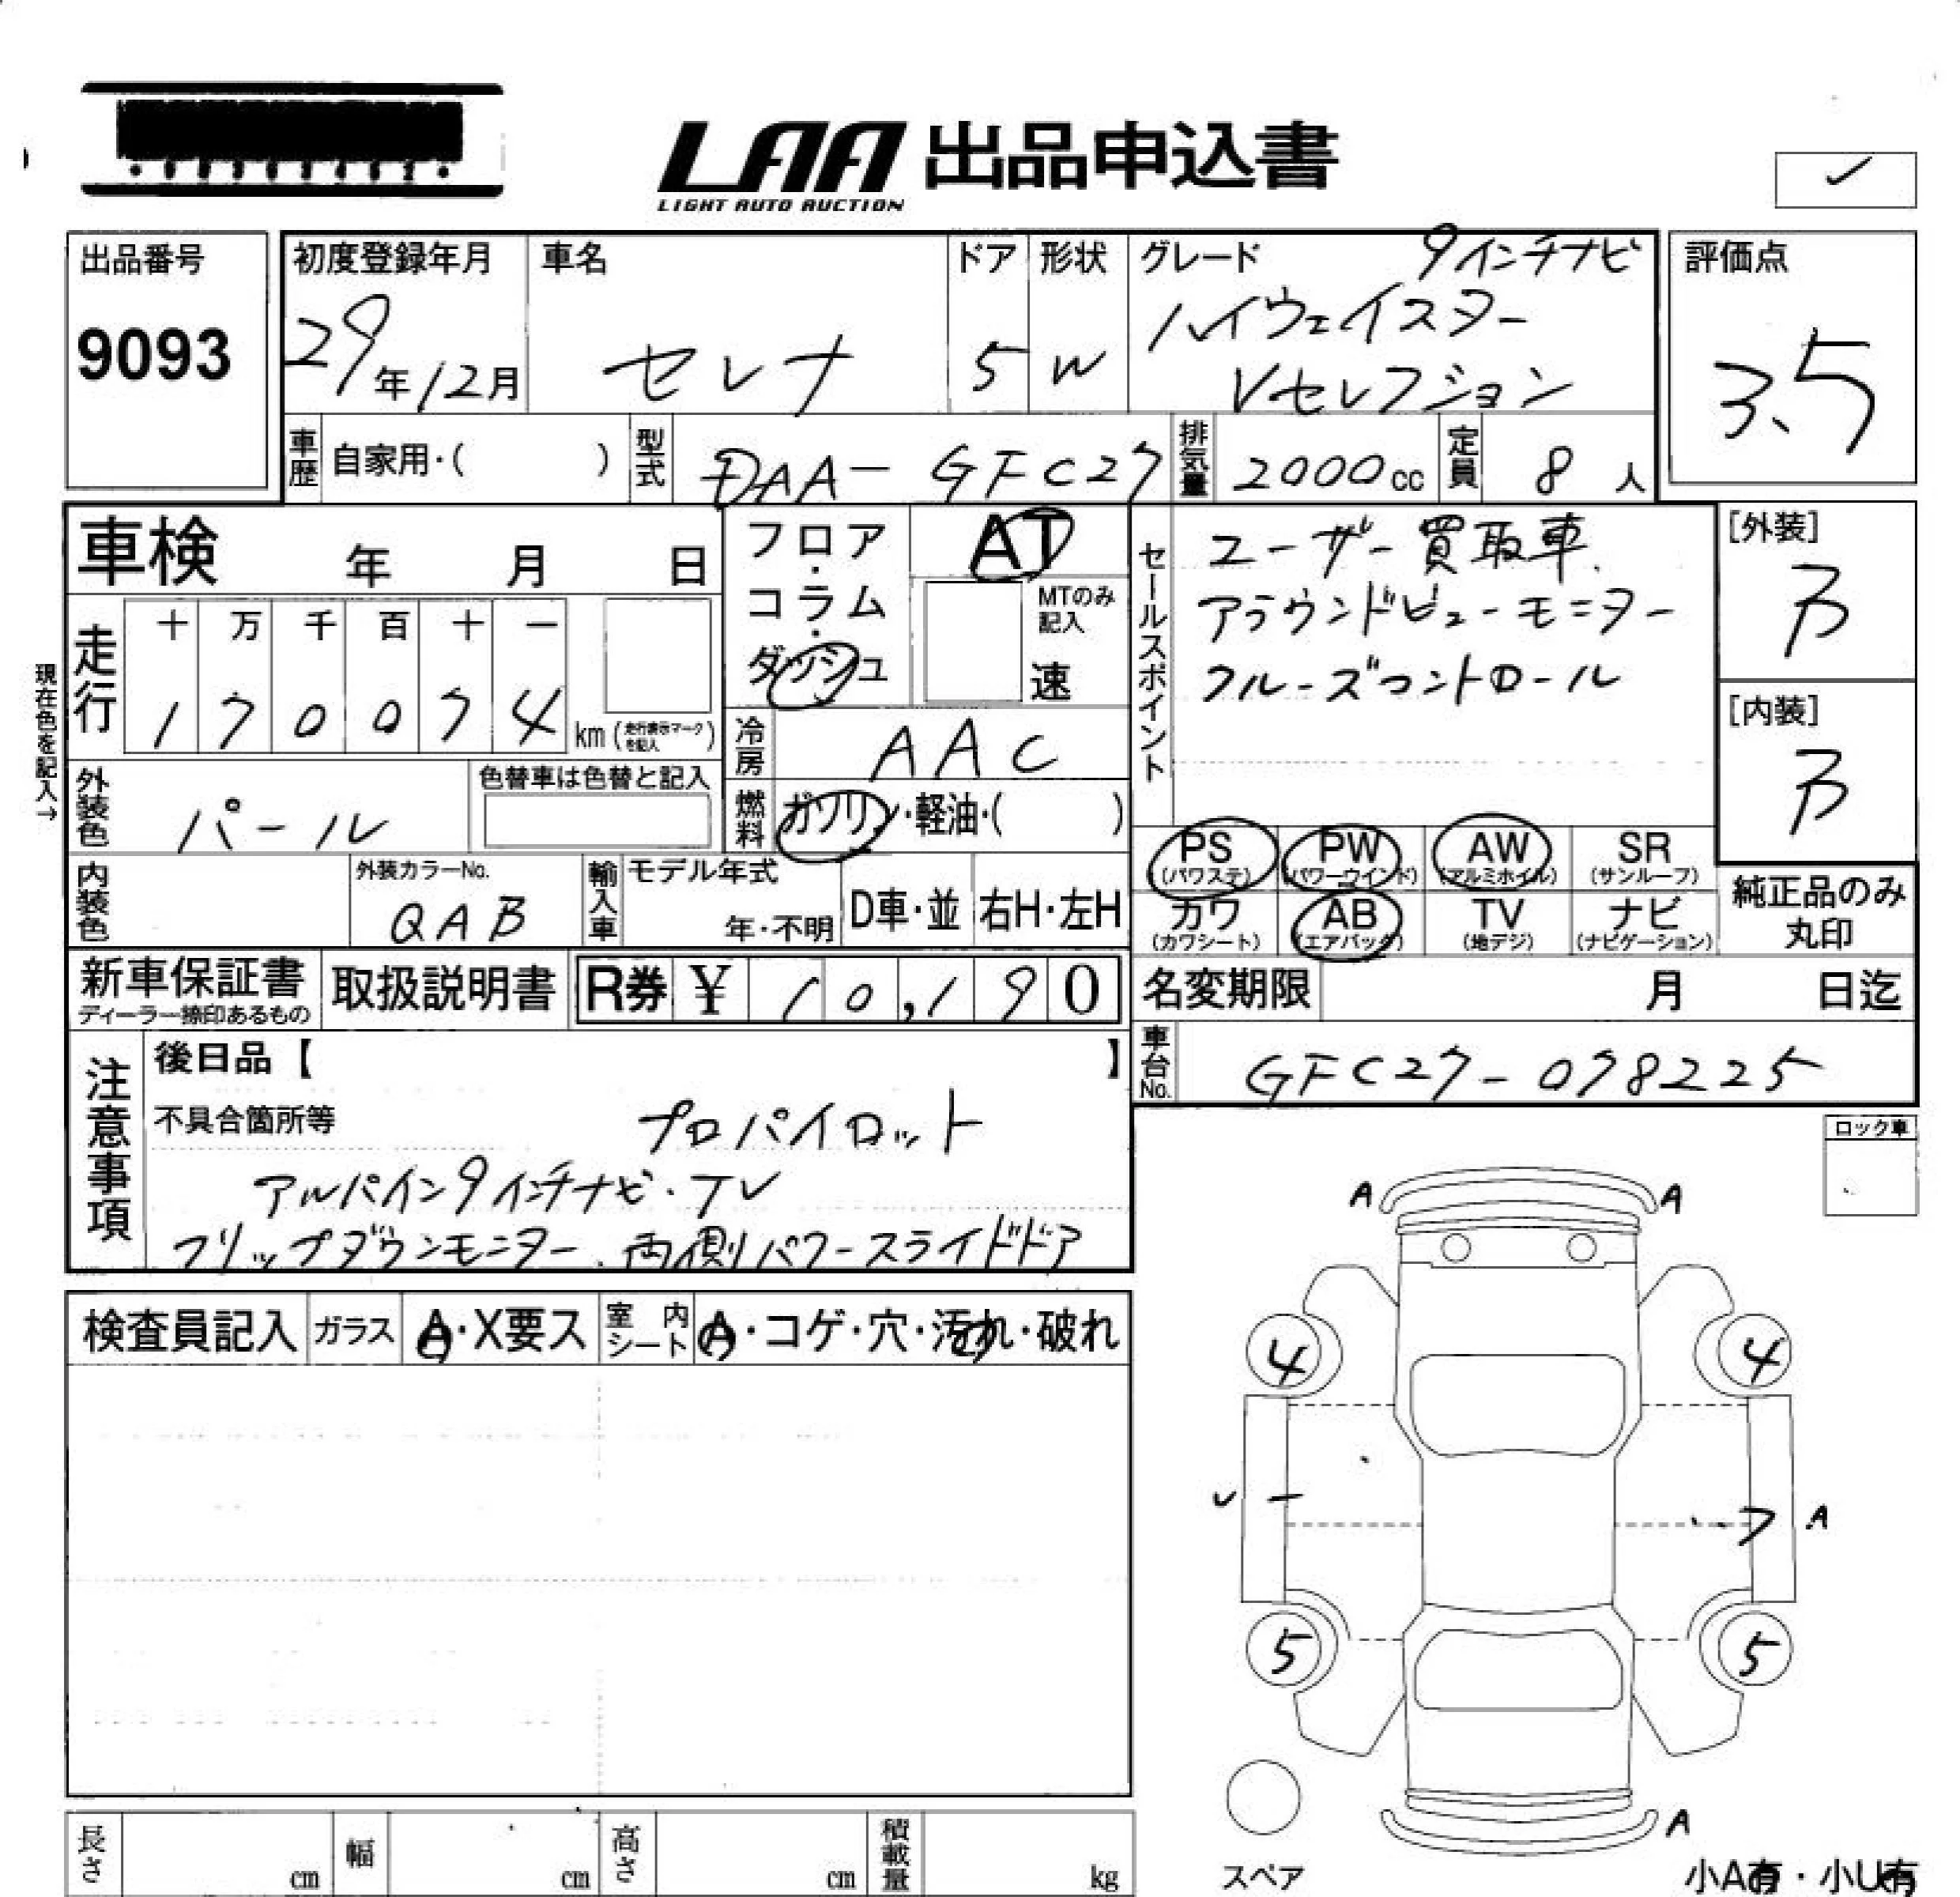 LAA 出品申込書
LIGHT AUTO AUCTION
✓
出品番号
9093
初度登録年月
29年12月
車名
セレナ
ドア
5
形状
W
グレード 9インチナビ
ハイウェイスター
Vセレクション
評価点
3.5
車歴 自家用・( )
型式 DAA-GFC27
排気量 2000cc
定員 8人
車検 年 月 日
走行
十 万 千 百 十 一
1 7 0 0 7 4 km (走行表示マークを記入)
現在色を記入→
外装色 パール
色替車は色替と記入
内装色
外装カラーNo.
QAB
フロア・コラム・ダッシュ
AT
MTのみ記入
速
冷房 AAC
燃料 ガソリン・軽油・( )
輸入車 モデル年式
年・不明
D車・並
右H・左H
セールスポイント
ユーザー買取車
アラウンドビューモニター
クルーズコントロール
[外装]
B
[内装]
B
PS (パワステ)
PW (パワーウインド)
AW (アルミホイル)
SR (サンルーフ)
カワ (カワシート)
AB (エアバック)
TV (地デジ)
ナビ (ナビゲーション)
純正品のみ
丸印
新車保証書
ディーラー捺印あるもの
取扱説明書
R券 ¥ 10,190
名変期限 月 日迄
車台No. GFC27-078225
注意事項
後日品【 】
不具合箇所等 プロパイロット
アルパイン9インチナビ・TV
フリップダウンモニター、両側パワースライドドア
ロック車
検査員記入
ガラス A・X要ス
室内シート A・コゲ・穴・汚れ・破れ
A A
4 4
A
5 5
A
スペア
小A有・小U有
長さ cm
幅 cm
高さ cm
積載量 kg